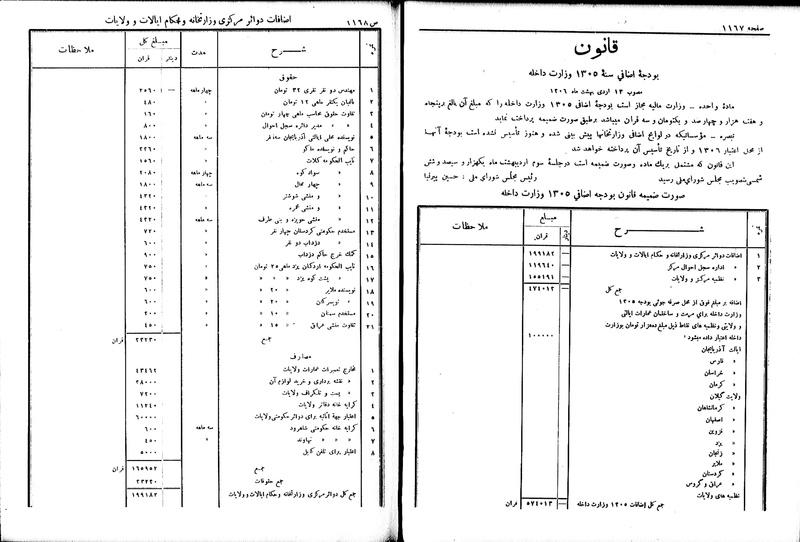 صفحه ۱۱۶۷
قانون
بودجهٔ اضافی سنهٔ ۱۳۰۵ وزارت داخله
مصوب ۱۳ اردی بهشت ماه ۱۳۰۶
مادهٔ واحده ـ وزارت مالیه مجاز است بودجهٔ اضافی ۱۳۰۵ وزارت داخله را که مبلغ آن بالغ بر پنجاه
و هفت هزار و چهار صد و یکتومان و سه قران میباشد بر طبق صورت ضمیمه پرداخت نماید
تبصره ـ مؤسساتیکه در لوایح اضافی وزارتخانها پیش بینی شده و هنوز تأسیس نشده است بودجهٔ آنهـا
از محل اعتبار ۱۳۰۶ و از تاریخ تأسیس آن پرداخته خواهد شد
این قانون که مشتمل بریك ماده وصورت ضمیمه است در جلسهٔ سوم اردیبهشت ماه یکهزار و سیصد و شش
شمسی بتصویب مجلس شورای ملی رسید رئیس مجلس شورای ملی : حسین پیرنیا
صورت ضمیمه قانون بودجه اضافی ۱۳۰۵ وزارت داخله
شـــرح مبلغ ملاحظات
دینار قران
۱ اضافات دوائر مرکزی وزارتخانه و حکام ایالات و ولایات — ۱۹۹۱۸۲
۲ » اداره سجل احوال مرکز — ۱۱۹۶۴۰
۳ » نظمیه مرکز و ولایات — ۱۵۵۱۹۱
جمع کل — ۴۷۴۰۱۳
اضافه بر مبلغ فوق از محل صرفه جوئی بودجه ۱۳۰۵
وزارت داخله برای مرمت و ساختمان عمارات ایالتی
و ولایتی ونظمیه های نقاط ذیل مبلغ ده هزار تومان بوزارت
داخله اعتبار داده میشود : ۱۰۰۰۰۰
ایالت آذربایجان
» فارس
» خراسان
» کرمان
ولایت گیلان
» کرمانشاهان
» اصفهان
» قزوین
» یزد
» زنجان
» ملایر
» کردستان
» عراق و گروس
نظمیه های ولایات
جمع کل اضافات ۱۳۰۵ وزارت داخله — ۵۷۴۰۱۳ قران
ص ۱۱۶۸ اضافات دوائر مرکزی وزارتخانه وحکام ایالات و ولایات
شـــرح مدت مبلغ کل ملاحظات
دینار قران
حقوق
۱ مهندس دو نفر نفری ۳۲ تومان چهار ماهه — ۲۵۶۰
۲ باغبان یکنفر ماهی ۱۲ تومان » ۴۸۰
۳ تفاوت حقوق محاسب ماهی چهار تومان » ۱۶۰
۴ » » مدیر دائره سجل احوال » ۸۰۰
۵ نویسنده محلی ایالتی آذربایجان سه نفر سه ماهه ۱۸۰۰
۶ حاکم و نویسنده ماکو » ۲۲۶۰
۷ نایب الحکومه کلات » ۱۵۶۰
۸ » سواد کوه چهار ماهه ۲۰۸۰
۹ » چهار محال سه ماهه ۱۸۰۰
۱۰ » و منشی شوشتر » ۴۳۲۰
۱۱ » و منشی محمره » ۴۳۲۰
۱۲ » منشی حویزه و بنی طرف سه ماهه ۴۳۲۰
۱۳ مستخدم حکومتی کردستان چهار نفر » ۷۲۰
۱۴ » دزداب دو نفر » ۶۰۰
۱۵ کمك خرج حاکم دزداب » ۹۰۰
۱۶ نایب الحکومه اردکان یزد ماهی ۲۵ تومان » ۷۵۰
۱۷ » پشت کوه یزد » » » ۷۵۰
۱۸ نویسنده ملایر » ۲۰ » » ۶۰۰
۱۹ » تویسرکان » ۲۰ » » ۶۰۰
۲۰ مستخدم سمنان » ۱۰ » » ۳۰۰
۲۱ تفاوت منشی عراق » ۱۵ » » ۴۵۰
جمع ۳۳۲۳۰ قران
مصارف
۱ مخارج تعمیرات عمارات ولایات ۴۳۴۶۲
۲ » نقشه برداری و خرید لوازم آن ۳۸۰۰۰
۳ » پست و تلگراف ولایات ۷۲۰۰
۴ کرایه خانه دفاتر ولایات ۱۱۲۴۰
۵ اعتبار جهة اثاثیه برای دوائر حکومتی ولایات ۶۰۰۰۰
۶ کرایه خانه حکومتی شاهرود سه ماهه ۶۰۰
۷ » » » نهاوند » ۴۵۰
۸ اعتبار برای تلفن کابل ۵۰۰۰
جمع ۱۶۵۹۵۲ قران
جمع حقوقات ۳۳۲۳۰
جمع کل دوائر مرکزی وزارتخانه و حکام ایالات و ولایات ۱۹۹۱۸۲